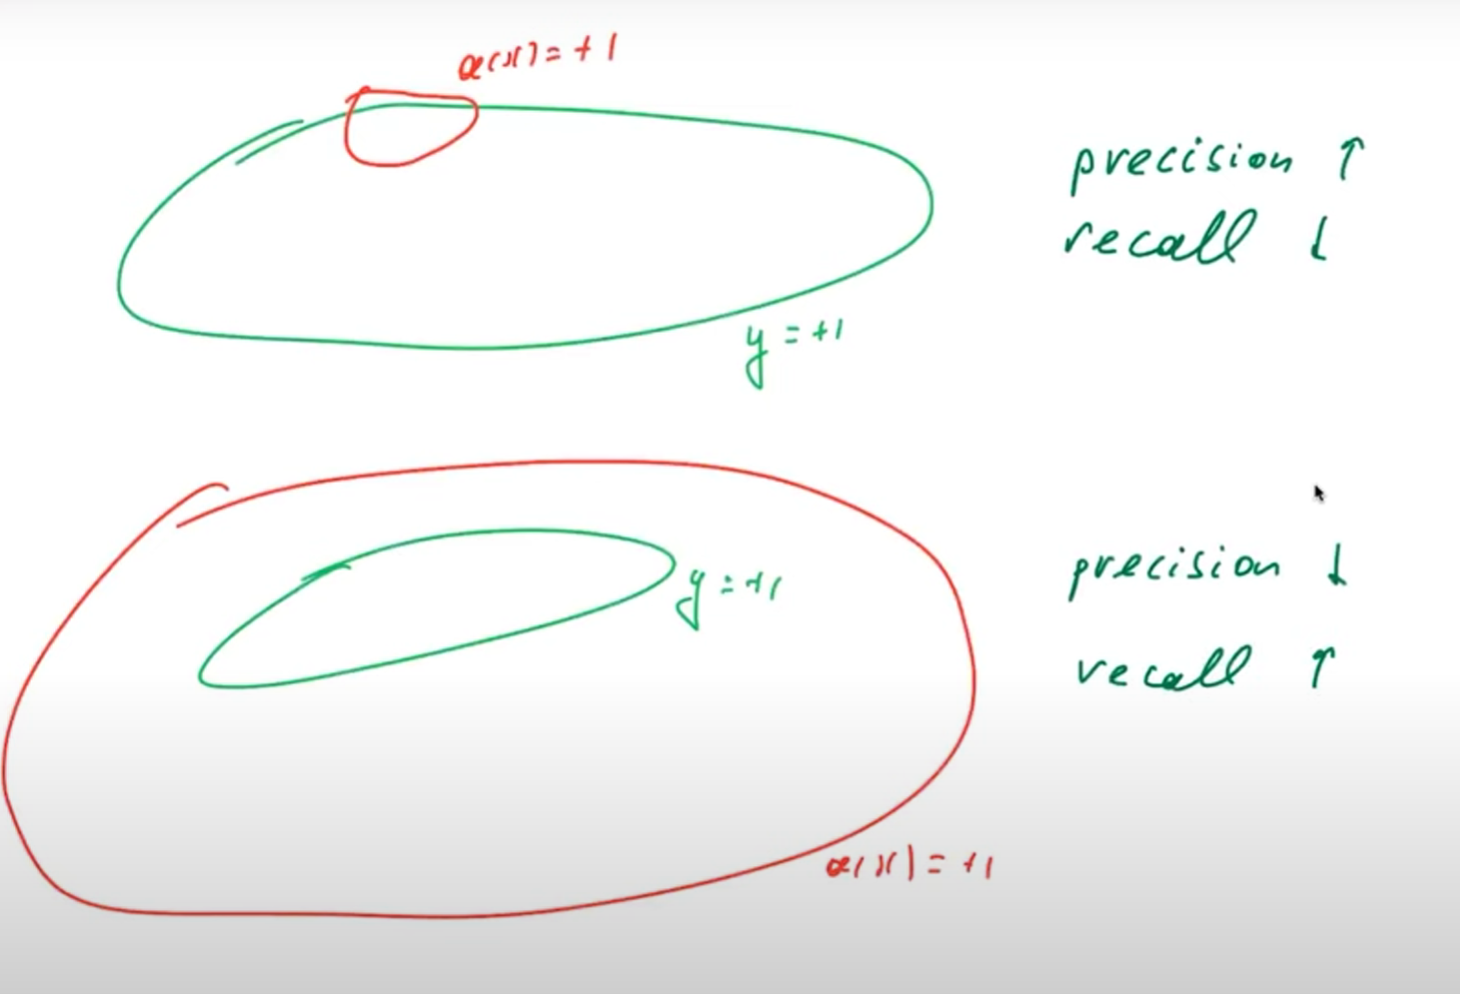 a(x) = +1
precision ↑
recall ↓
y = +1
y = +1
precision ↓
recall ↑
a(x) = +1